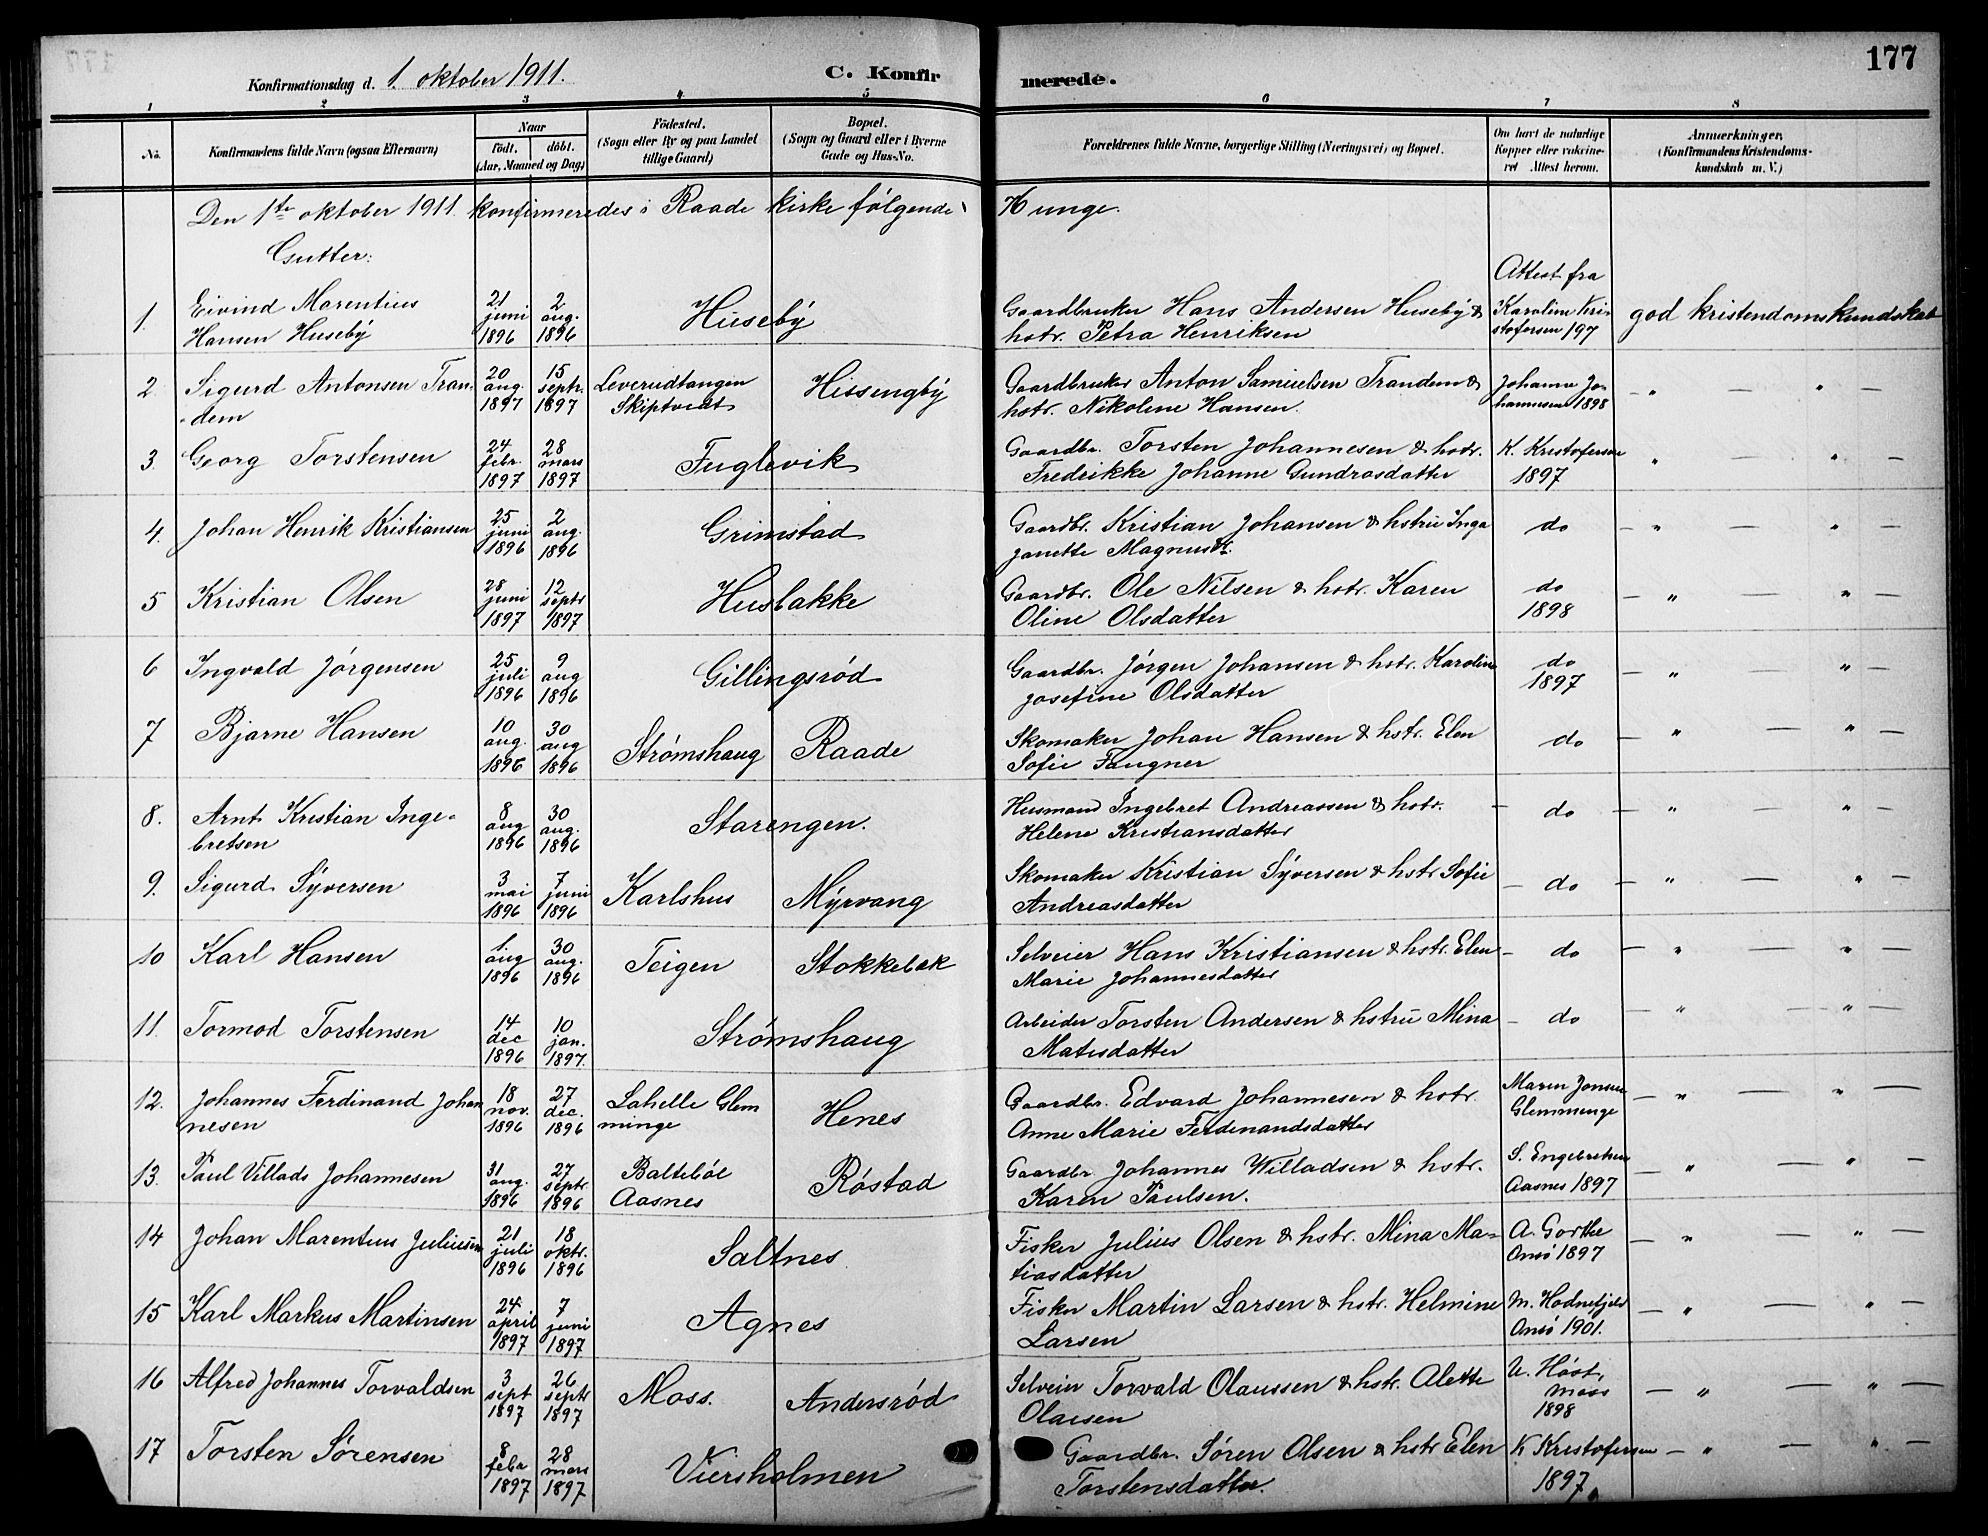 177
Konfirmationsdag d. 1. oktober 1911.
C. Konfirmerede.
1 2 3 4 5 6 7 8
No.
Konfirmandens fulde Navn (ogsaa Efternavn)
Naar
født. døbt.
(Aar, Maaned og Dag)
Fødested.
(Sogn eller By og paa Landet
tillige Gaard)
Bopæl.
(Sogn og Gaard eller i Byerne
Gade og Hus-No.
Forældrenes fulde Navne, borgerlige Stilling (Næringsvei) og Bopæl.
Om havt de naturlige
Kopper eller vaccine-
ret Attest herom.
Anmærkninger.
(Konfirmandens Kristendoms-
kundskab m. V.)
Den 1ste oktober 1911 konfirmeredes i Raade kirke følgende unge.
Gutter:
Attest fra
1. Eivind Marentius Hansen Huseby 21 juni 1896 2 aug. 1896 Huseby Gaardbruker Hans Andersen Huseby & hstr. Petra Henriksen Karoline Kristofersen 197 god kristendomskundskab
2. Sigurd Antonsen Trandem 20 aug. 1897 15 septr. 1897 Leverudtangen Skiptvedt Hissengby Gaardbruker Anton Samuelsen Trandem & hstr. Nikoline Hansen. Johanne Johannesen 1898 - " - " -
3. Georg Torstensen 24 febr. 1897 28 mars 1897 Fuglevik Gaardbr. Torsten Johannesen & hstr. Fredrikke Johanne Gundrosdatter K. Kristofersen 1897 " - " -
4. Johan Henrik Kristiansen 25 juni 1896 2 aug. 1896 Grimstad Gaardbr. Kristian Johansen & hstru Inga Janette Magnusdt. do - " - " -
5 Kristian Olsen 28 juni 1897 12 septr 1897 Husbakke Gaardbr. Ole Nilsen & hstr. Karen Oline Olsdatter do 1898 - " - " -
6 Ingvald Jørgensen 25 juli 1896 9 aug 1896 Gillingsrød Gaardbr. Jørgen Johansen & hstr. Karoline Josefine Olsdatter do 1897 - " - " -
7 Bjarne Hansen 10 aug. 1896 30 aug 1896 Strømshaug Raade Skomaker Johan Hansen & hstr. Elen Sofie Faugner do - " - " -
8. Arnt Kristian Ingebretsen 8 aug 1896 30 aug. 1896 Starengen. Husmand Ingebret Andreassen & hstr. Helene Kristiansdatter - do - " - " -
9. Sigurd Syversen 3 mai 1896 7 juni 1896 Karlshus Myrvang Skomaker Kristian Syversen & hstr Sofie Andreasdatter - do - " - " -
10 Karl Hansen 1 aug 1896 30 aug. 1896 Teigen Stokkebæk Selveier Hans Kristiansen & hstr. Elen Marie Johannesdatter - do - " - " -
11. Tormod Torstensen 14 dec 1896 10 jan. 1897. Strømshaug Arbeider Torsten Andersen & hstru Mina Matisdatter - do - " - " -
12. Johannes Ferdinand Johannesen 18 nov. 1896 27 dec. 1896 Lahelle Glemminge Henes Gaardbr. Edvard Johannesen & hstr. Anne Marie Ferdinandsdatter Maren Jonsen Glemminge - " - " -
13. Paul Villads Johannesen 31 aug. 1896 27 septr. 1896 Baltebøl Aasnes Røstad Gaardbr. Johannes Willadsen & hstr. Karen Paulsen. S. Engebretsen Aasnes 1897 - " - " -
14 Johan Marentius Juliussen 21 juli 1896 18 oktr. 1896 Saltnes Fisker Julius Olsen & hstr. Mina Matiasdatter A. Gorthe Onsø 1897 - " - " -
15 Karl Markus Martinsen 24 april 1897 7 juni 1897 Agnes Fisker Martin Larsen & hstr. Helmine Larsen M. Hodnefjeld Onsø 1901. - " - " -
16 Alfred Johannes Torvaldsen 3 sept 1897 26 septr 1897 Moss. Andersrød Selveier Torvald Olaussen & hstr. Alette Olausen U. Høst, Moss 1898 - " - " -
17 Torsten Sørensen 8 febr 1897 28 mars 1897 Viersholmen Gaardbr. Søren Olsen & hstr Elen Torstensdatter. K Kristofersen 1897 - " - " -